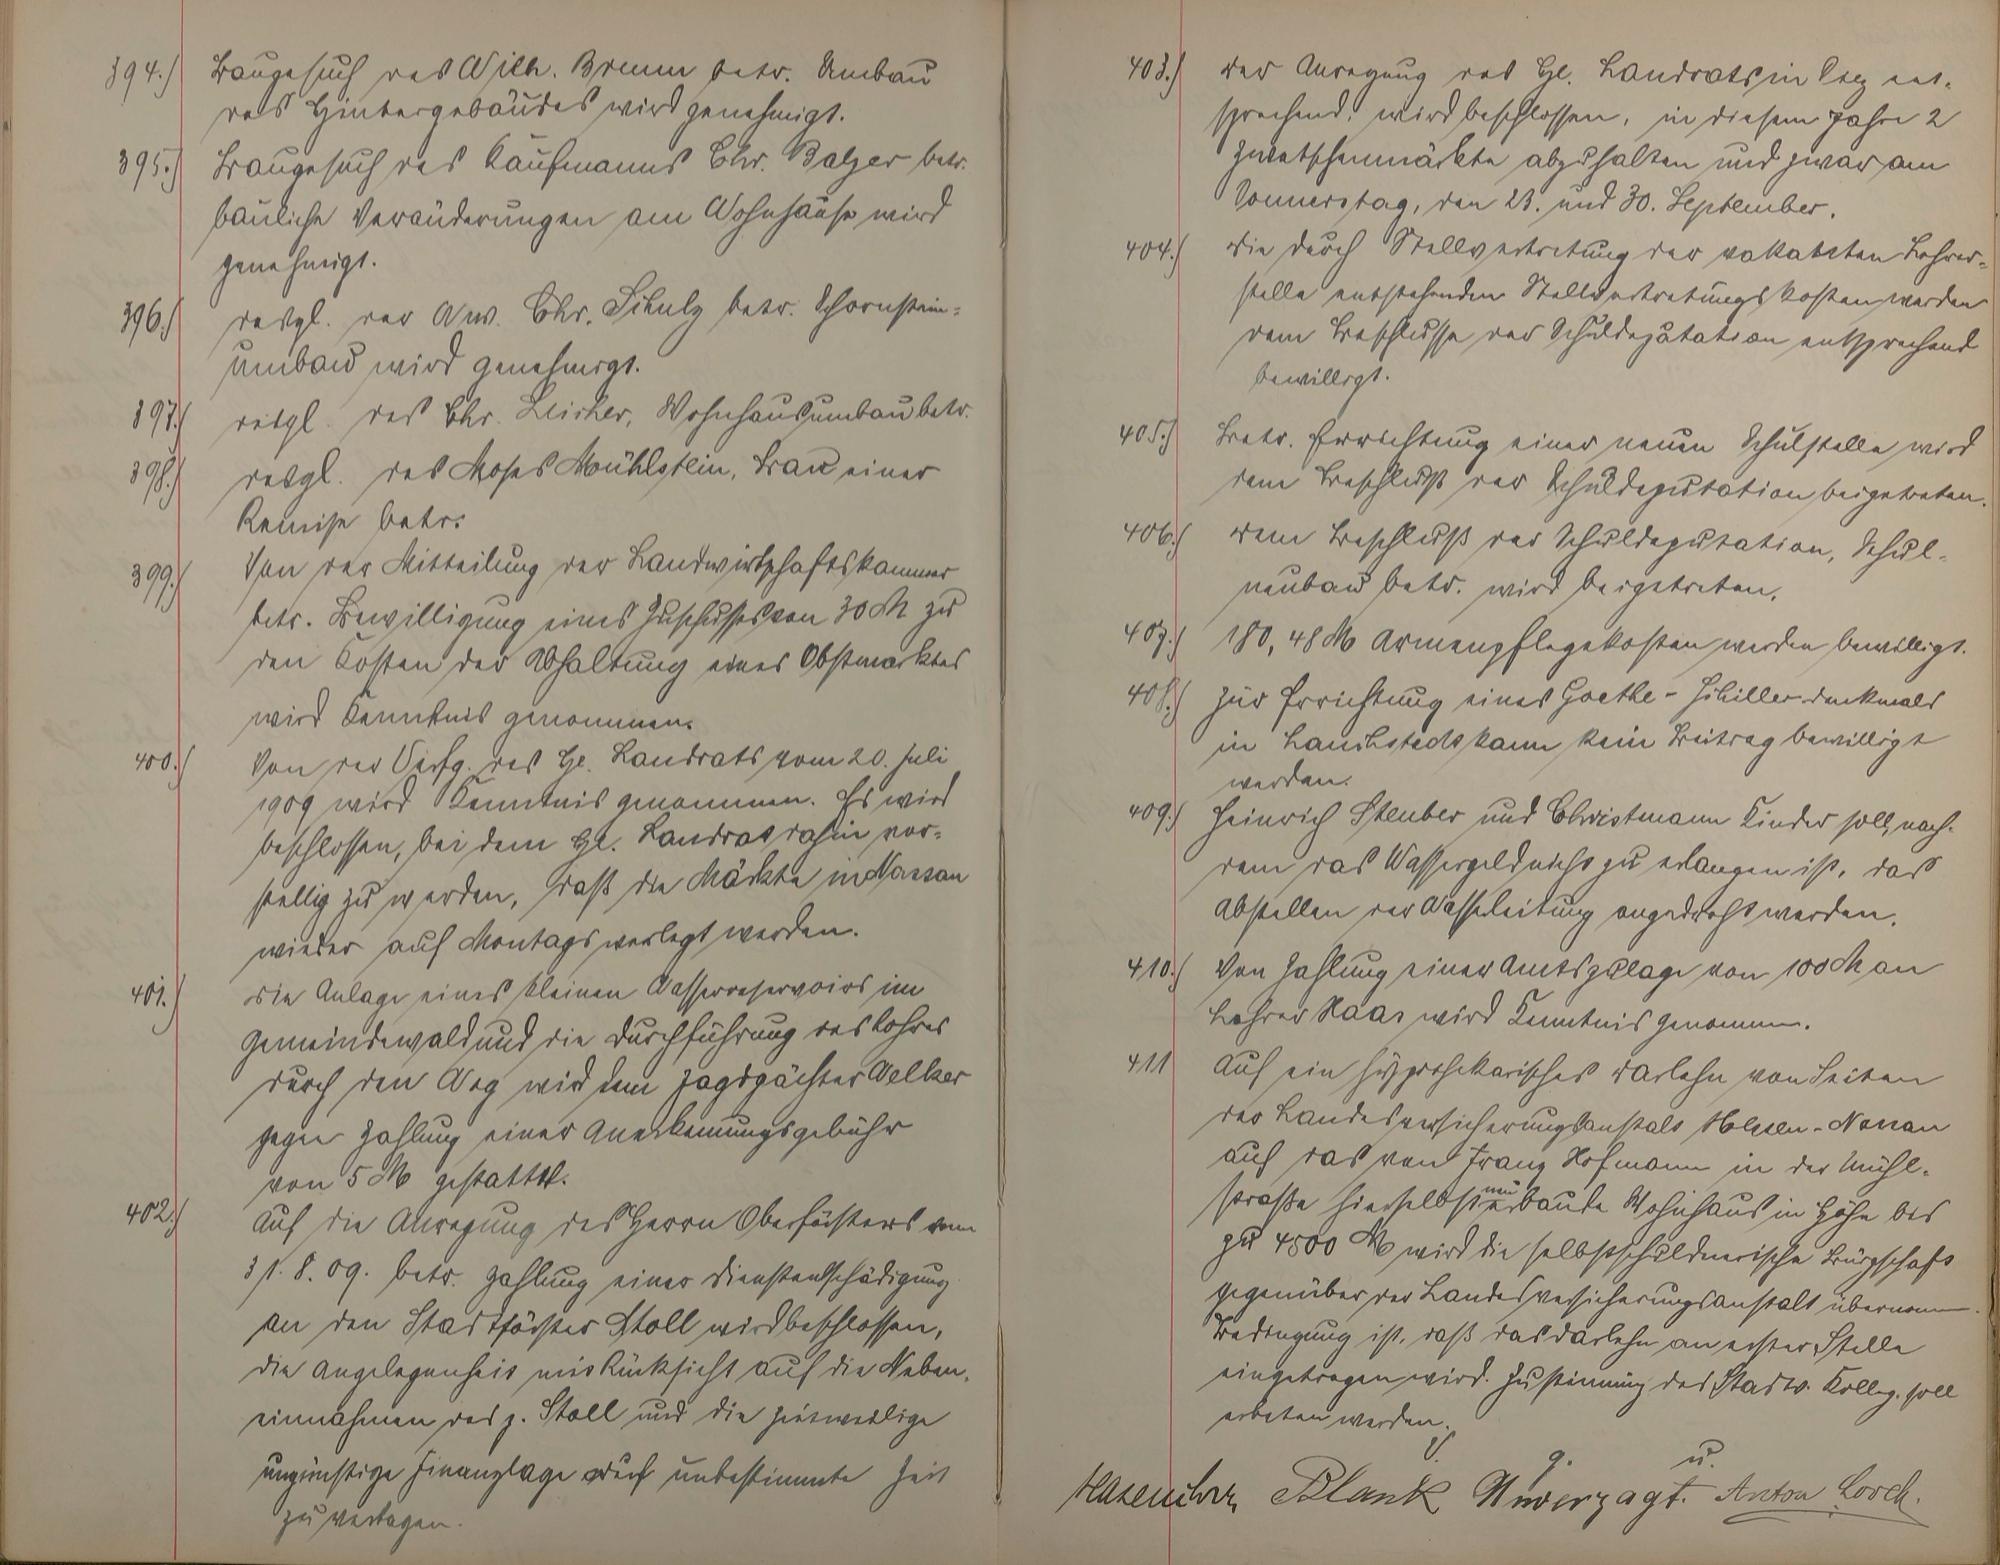 394.) Baugesuch des Wilh. Bremm betr. Umbau
des Hintergebäudes wird genehmigt.
395.) Baugesuch des Kaufmanns Chr. Balzer betr.
bauliche Veränderungen am Wohnhause wird
genehmigt.
396.) desgl. der Ww. Chr. Schulz betr. Schornstein-
umbau wird genehmigt.
397.) desgl. des Chr. Leicher, Wohnhausumbau betr.
398.) desgl. des Moses Mühlstein, Bau einer
Remise betr.
399.) Von der Mitteilung der Landwirtschaftskammer
betr. Bewilligung eines Zuschusses von 30 M zu
den Kosten der Abhaltung eines Obstmarktes
wird Kenntnis genommen.
400.) Von der Verfg. des Hr. Landrats vom 20. Juli
1909 wird Kenntnis genommen. Es wird
beschlossen, bei dem Hr. Landrat dahin vor-
stellig zu werden, daß die Märkte in Nassau
wieder auf Montags verlegt werden.
401.) Die Anlage eines kleinen Wasserreservoirs im
Gemeindewald und die Durchführung des Rohres
durch den Weg wird dem Jagdpächter Oelker
gegen Zahlung einer Anerkennungsgebühr
von 5 M gestattet.
402.) Auf die Anregung des Herrn Oberförsters vom
31.8.09. betr. Zahlung einer Dienstentschädigung
an den Stadtförster Stoll wird beschlossen,
die Angelegenheit mit Rücksicht auf die Neben-
einnahmen des p. Stoll und die zeitweilige
ungünstige Finanzlage auf unbestimmte Zeit
zu vertagen.
403.) Der Anregung des Hr. Landrats in Diez ent-
sprechend, wird beschlossen, in diesem Jahre 2
Zwetschenmärkte abzuhalten und zwar am
Donnerstag, den 23. und 30. September.
404.) Die durch Stellvertretung der vakanten Lehrer-
stelle entstehenden Stellvertretungskosten werden
dem Beschlusse der Schuldeputation entsprechend
bewilligt.
405.) Betr. Errichtung einer neuen Schulstelle wird
dem Beschluß der Schuldeputation beigetreten.
406.) Dem Beschluß der Schuldeputation, Schul-
neubau betr. wird beigetreten.
407.) 180,48 M Armenpflegekosten werden bewilligt.
408.) Zur Errichtung eines Goethe-Schillerdenkmals
in Lauchstedt kann kein Beitrag bewilligt
werden.
409.) Heinrich Steuber und Christmann Kinder soll, nach-
dem das Wassergeld nicht zu erlangen ist, das
Abstellen der Wasserleitung angedroht werden.
410.) Von Zahlung einer Amtszulage von 100 M an
Lehrer Haas wird Kenntnis genommen.
411 Auf ein hypothekarisches Darlehn von Seiten
der Landesversicherungsanstalt Hessen-Nassau
auf das von Franz Hofmann in der Mühl-
straße hierselbst neu erbaute Wohnhaus in Höhe bis
zu 4500 M wird die selbstschuldnerische Bürgschaft
gegenüber der Landesversicherungsanstalt übernomm.
Bedingung ist, daß das Darlehn an erster Stelle
eingetragen wird. Zustimmung des Stadtv. Kolleg. soll
erbeten werden.
v. g. u.
Hasenclever Blank Unverzagt. Anton Lorch.